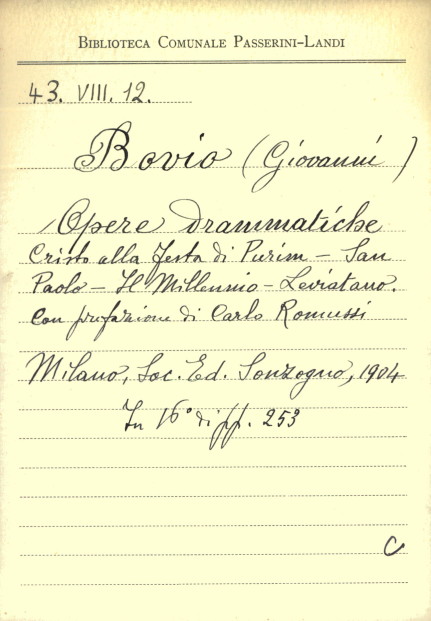 BIBLIOTECA COMUNALE PASSERINI-LANDI
43. VIII. 12.
Bovio (Giovanni)
Opere drammatiche
Cristo alla festa di Purim - San
Paolo - Il Millennio - Leviatano.
Con prefazione di Carlo Romussi
Milano, Soc. Ed. Sonzogno, 1904
In 16° di pp. 253
C